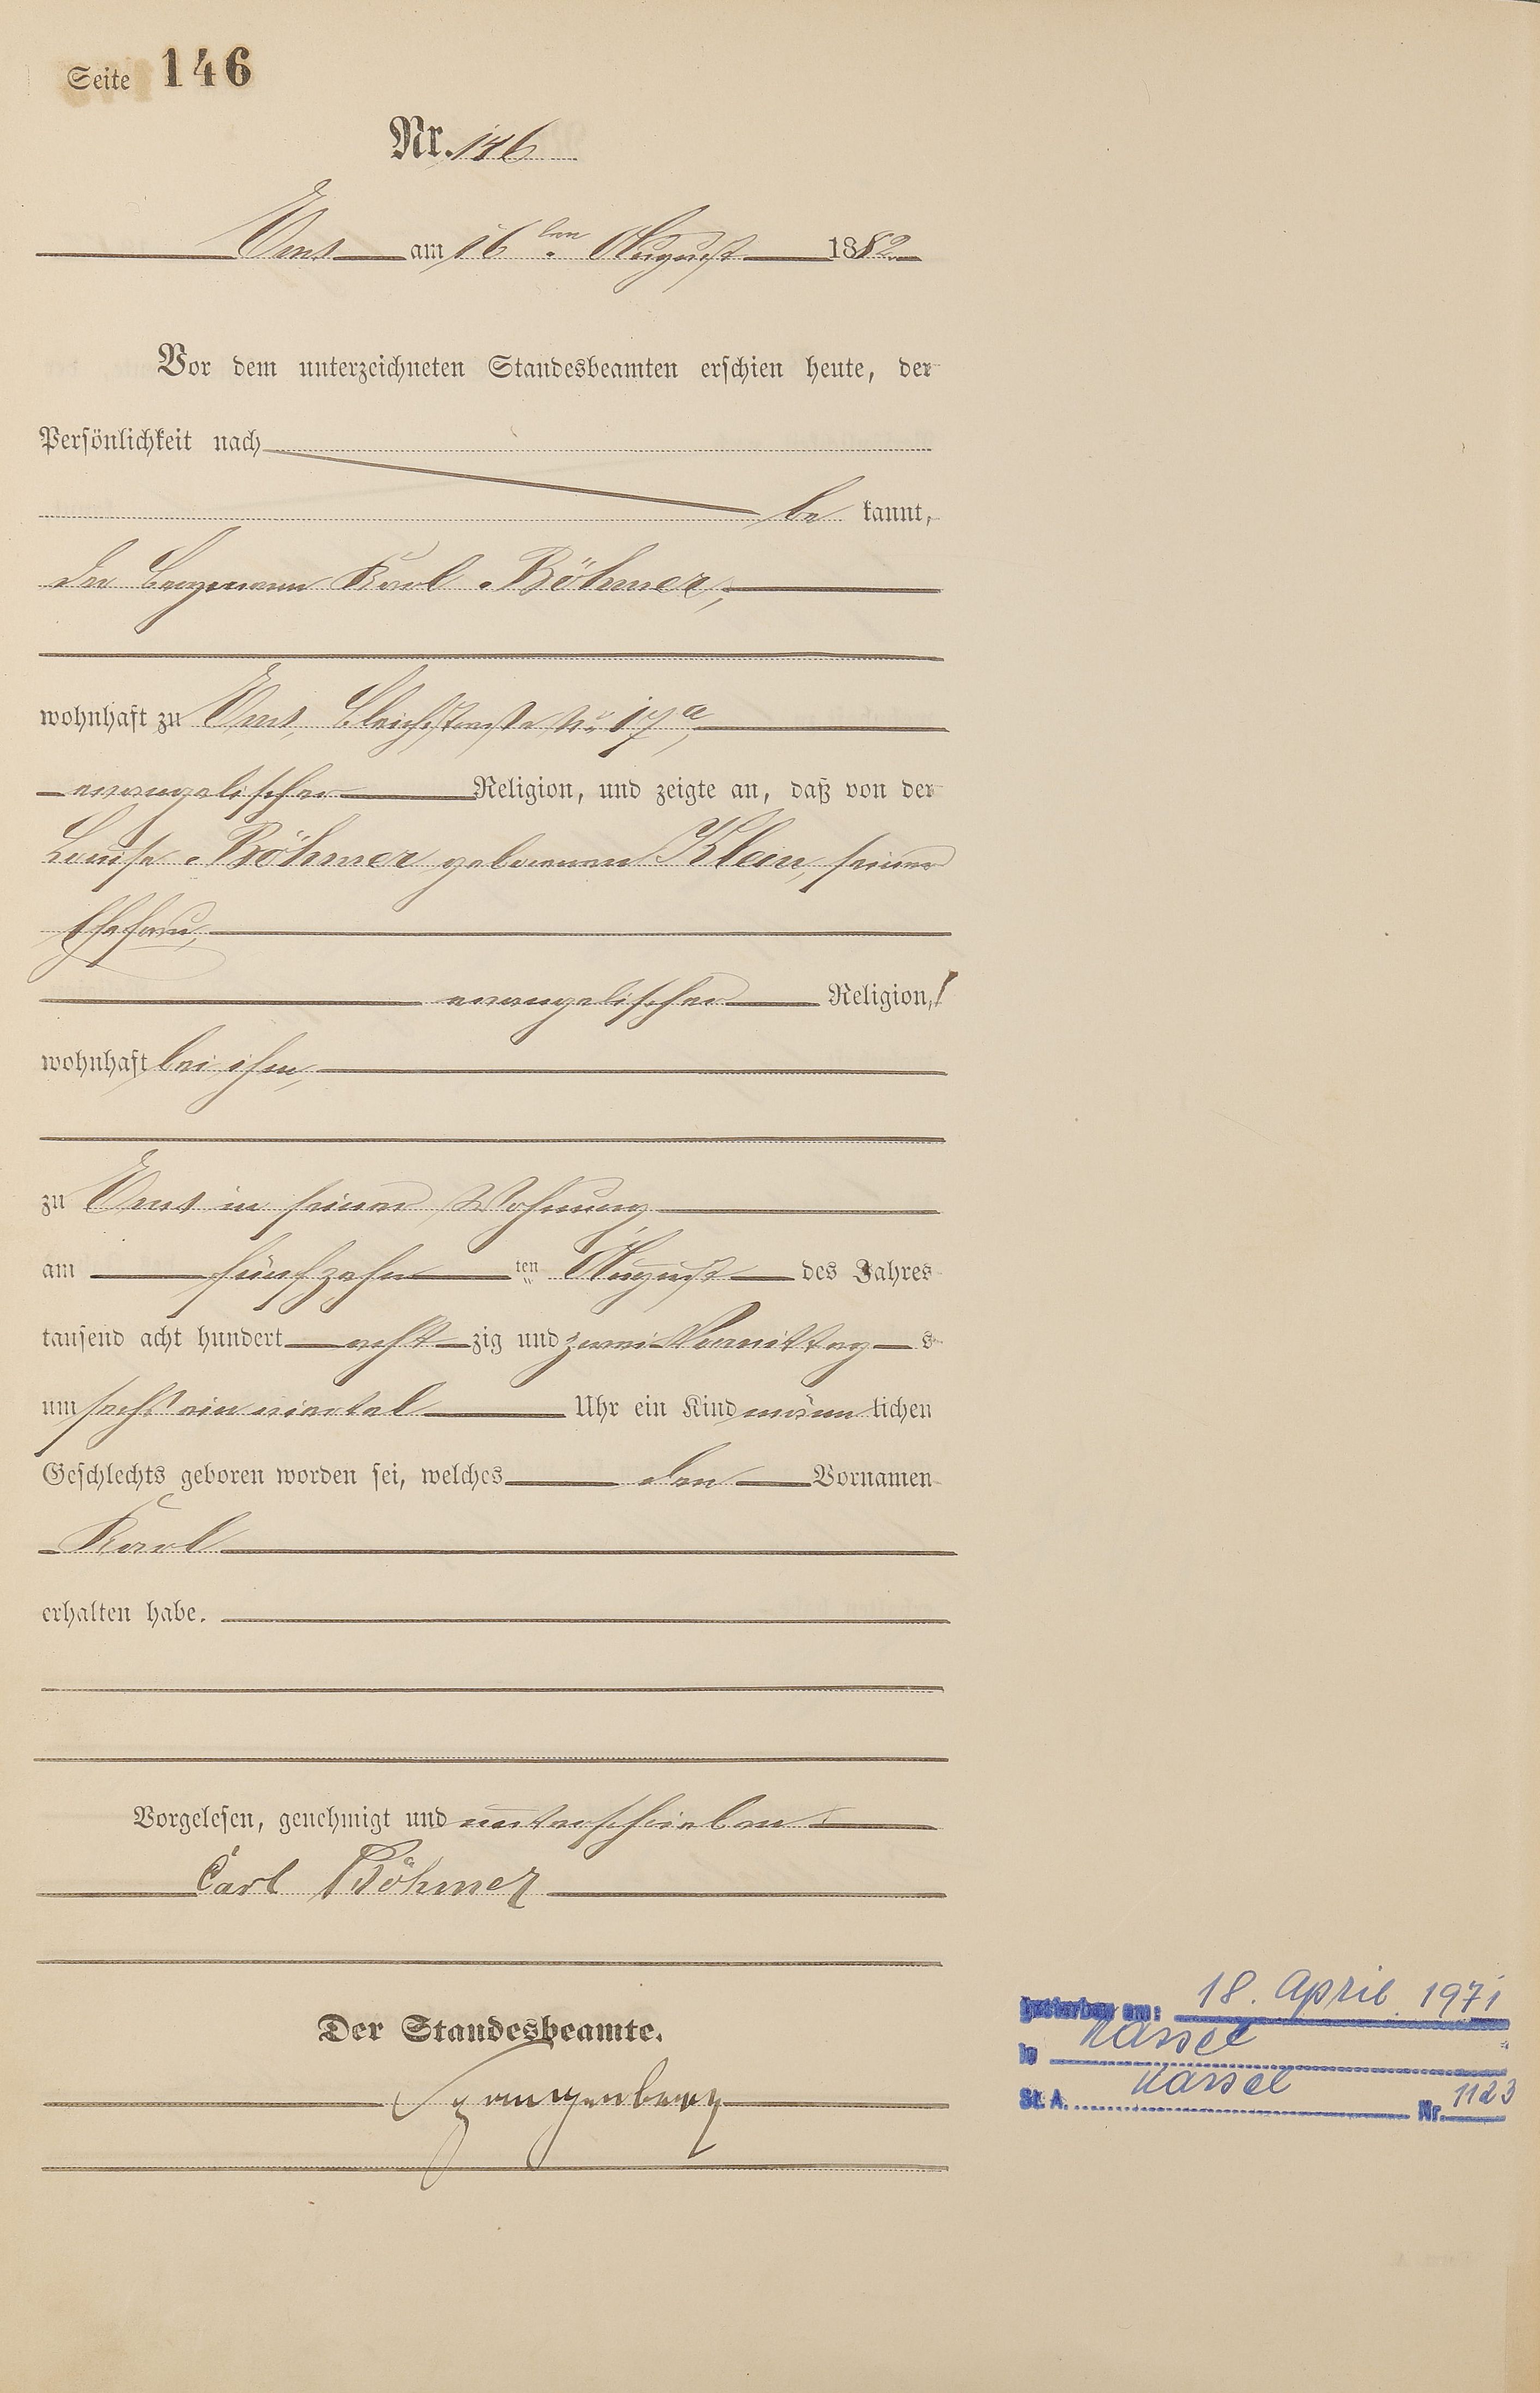 Seite 146
Nr. 146
Ems am 16ten August 1882.
Vor dem unterzeichneten Standesbeamten erschien heute, der
Persönlichkeit nach
be kannt,
der Bergmann Karl Böhmer,
wohnhaft zu Ems, Bleichstraße No 17a,
evangelischer Religion, und zeigte an, daß von der
Louise Böhmer geborenen Klein, seiner
Ehefrau,
evangelischer Religion,
wohnhaft bei ihm,
zu Ems in seiner Wohnung
am fünfzehn ten August des Jahres
tausend acht hundert acht zig und zwei Vormittag s
um sechs ein viertel Uhr ein Kind männ lichen
Geschlechts geboren worden sei, welches den Vornamen
Karl
erhalten habe.
Vorgelesen, genehmigt und unterschrieben
Carl Böhmer
Der Standesbeamte.
Spangenberg
Gestorben am: 18. April 1971
in Kassel
St. A. Kassel Nr. 1123